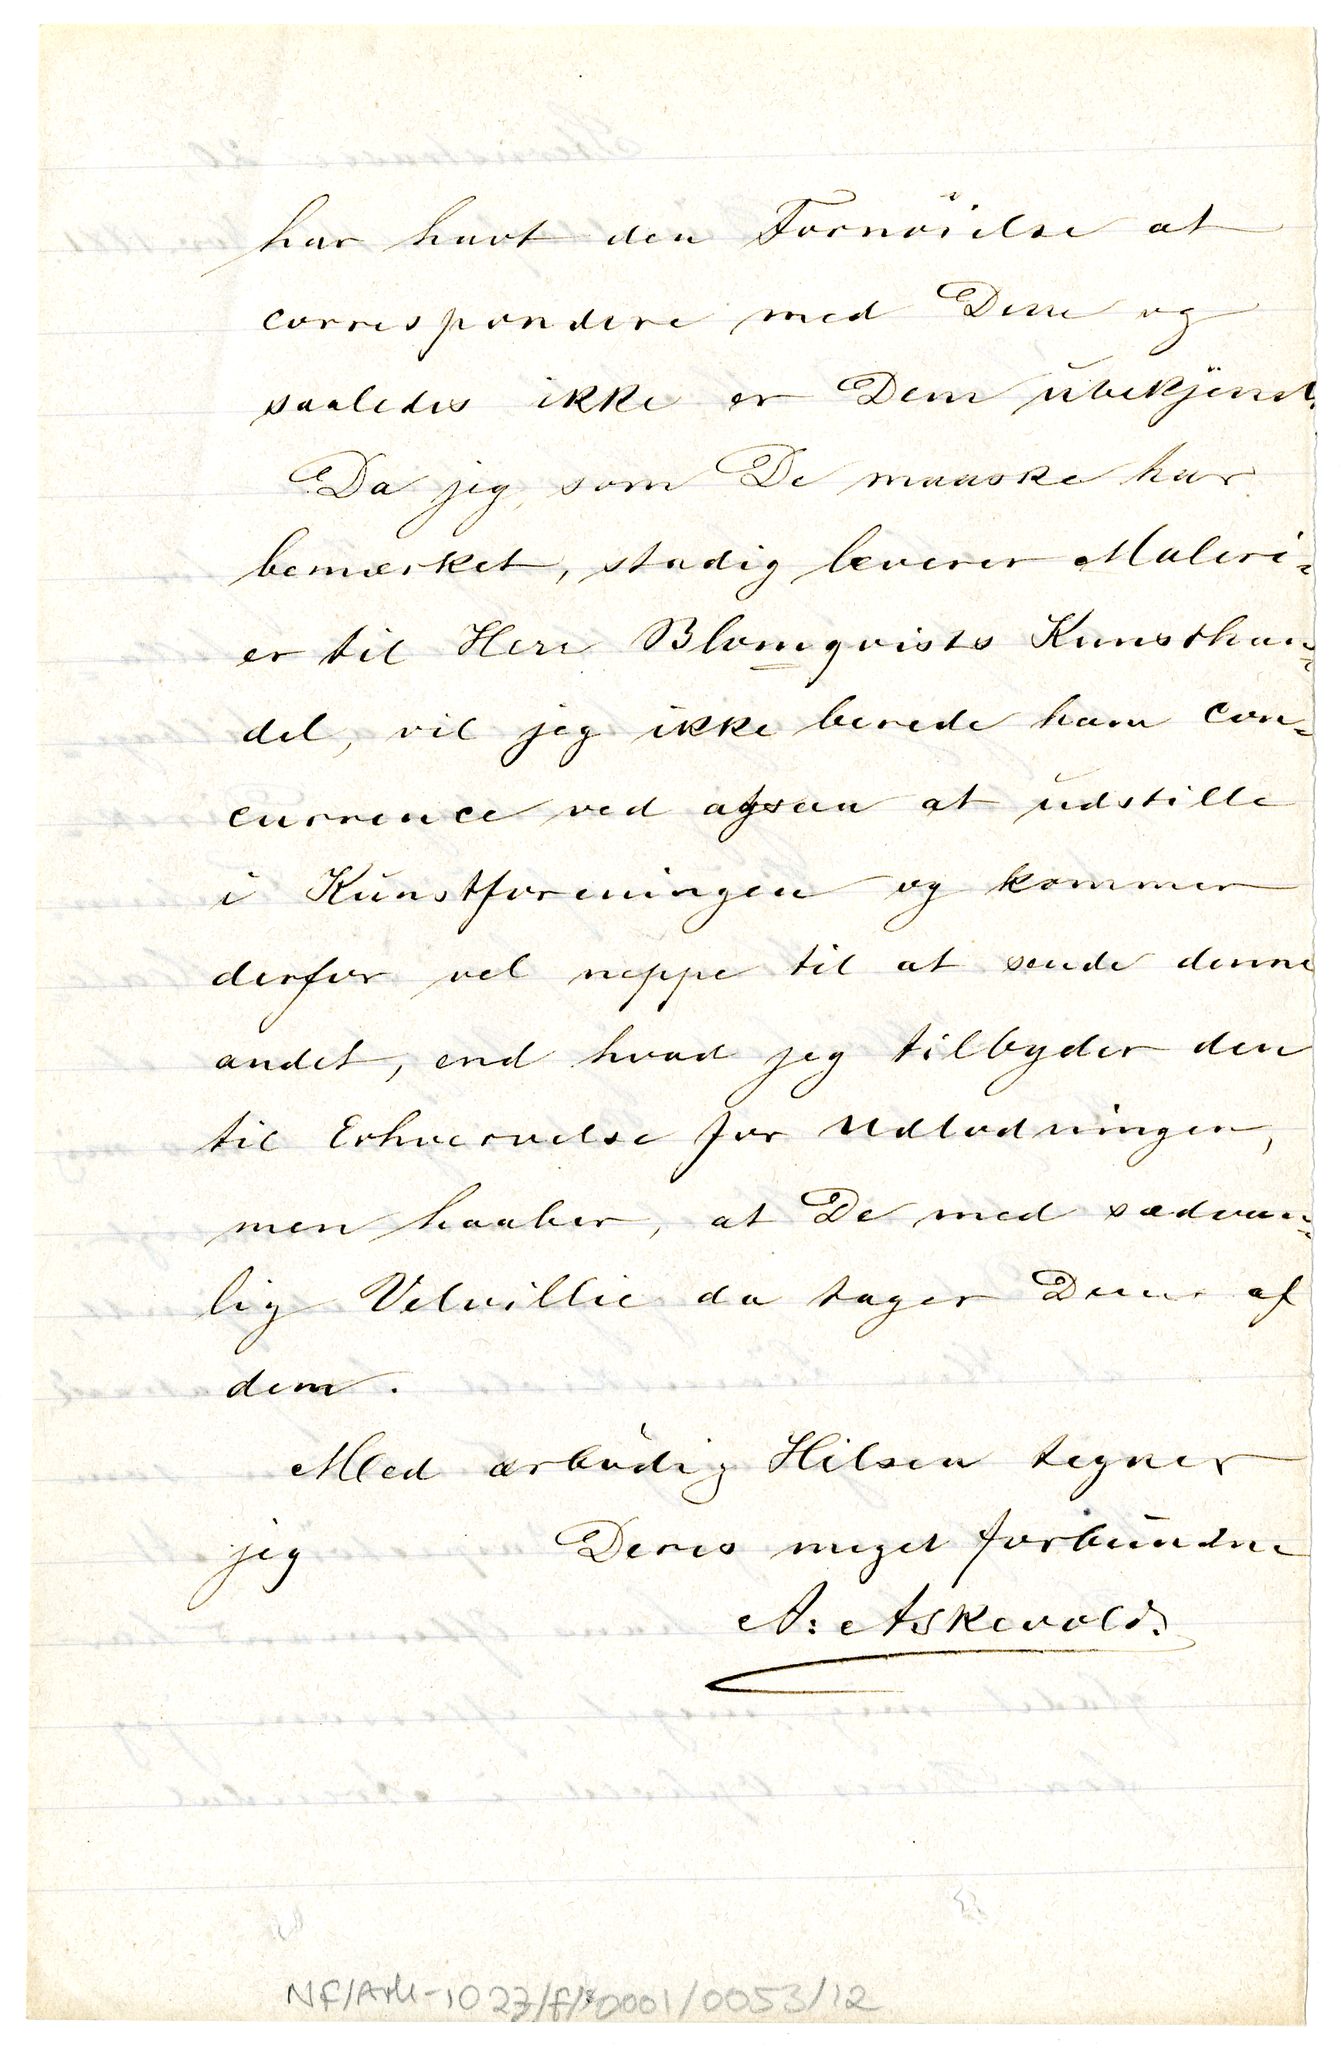 har havt den Fornöielse at
correspondere med Dem og
saaledes ikke er Dem ubekjendt.
Da jeg, som De maaske har
bemærket, stadig leverer Maleri-
er til Herr Blomqvists Kunsthan-
del, vil jeg ikke berede ham con-
currence ved ogsaa at udstille
i Kunstforeningen og kommer
derfor vel neppe til at sende denne
andet, end hvad jeg tilbyder den
til Erhvervelse for Udlodningen,
men haaber, at De med sædvan-
lig Velvillie da tager Dem af
dem.
Med ærbödig Hilsen tegner
jeg Deres meget forbundne
A: Askevold.
NF/Ark-1023/F/0001/0053/12